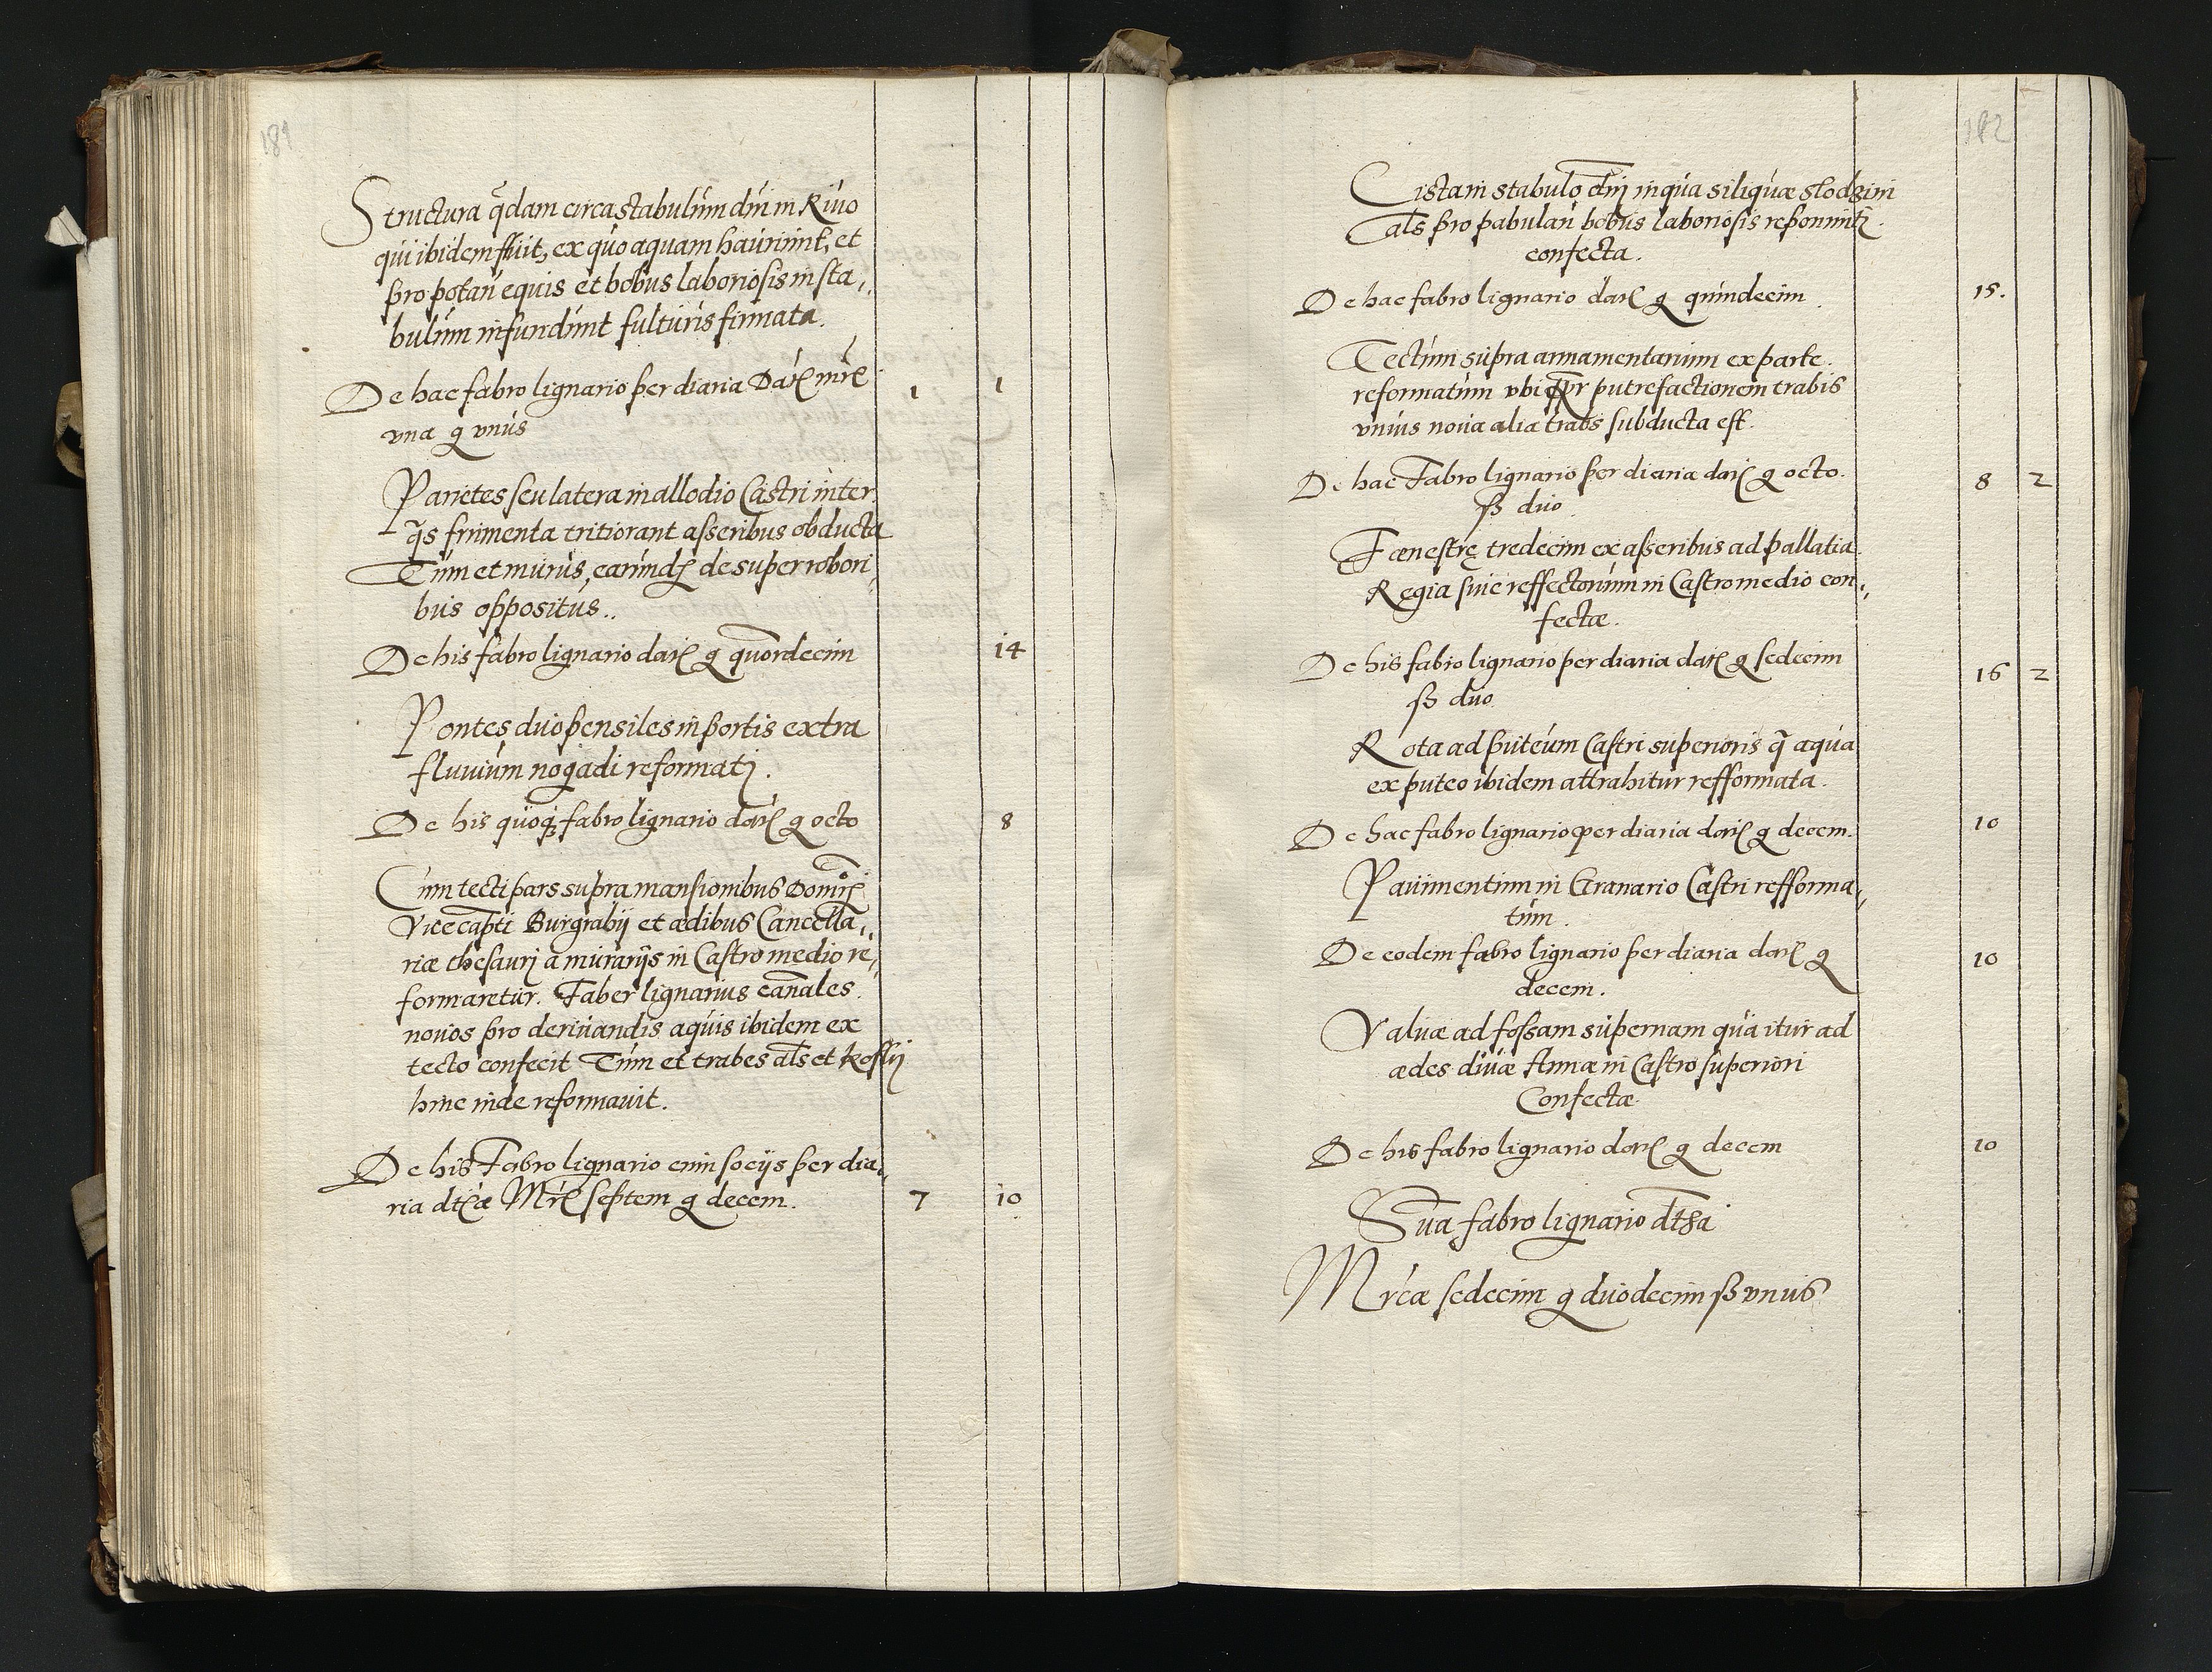 181
Structura q̃dam circa stabulum dni in Riuo
qui ibidem fluit, ex quo aquam hauriunt, et
pro potan̄ equis et bobus laboriosis in sta„
bulum infundunt fulturis firmata.
De hac fabro lignario per diaria Dat̃ mr̃c
vna g vnus 1 1
Parietes seu latera in allodio Castri inter
q̃s frumenta tritiorant asseribus obducta
Tum et murus, earundẽ desuper robori„
bus oppositus..
De his fabro lignario dat̃ g quordecim 14
Pontes duo pensiles in portis extra
fluuium nogadi reformati.
De his quoq; fabro lignario dat̃ g octo 8
Cum tecti pars supra mansionibus
Vicecapti Burgrabij et ædibus Cancella„
riæ thesauri a murarijs in Castro medio re„
formaretur. Faber lignarius canales
nouos pro deriuandis aquis ibidem ex
tecto confecit Tum et trabes als et
hinc inde reformauit.
De his Fabro lignario cum socijs per dia„
ria Mr̃c septem g decem. 7 10
182
Cista in stabulo dnj in qua siliquæ slodzini
als pro pabulan̄ bobus laboriosis reponunt̃
confecta.
De hac fabro lignario dat̃ g quindecim 15.
Tectum supra armamentarium ex parte
reformatum vbi putrefactionem trabis
vnius noua alia trabs subducta est.
De hac Fabro lignario per diaria dat̃ g octo.
ß duo 8 2
Fænestrę tredecim ex asseribus ad pallatia
Regia siue reffectorium in Castro medio con„
fectæ.
De his fabro lignario per diaria dat̃ g sedecim
ß duo 16 2
Rota ad puteum Castri superioris q̃ aqua
ex puteo ibidem attrahitur refformata.
De hac fabro lignario per diaria dat̃ g decem. 10
Pauimentum in Granario Castri refforma„
tum.
De eodem fabro lignario per diaria dat̃ g
decem. 10
Valuæ ad fossam supernam qua itur ad
ædes diuæ Annæ in Castro superiori
Confectæ
De his fabro lignario dat̃ g decem 10
Sũa fabro lignario dtħa
Mrcæ sedecim g duodecim ß vnus